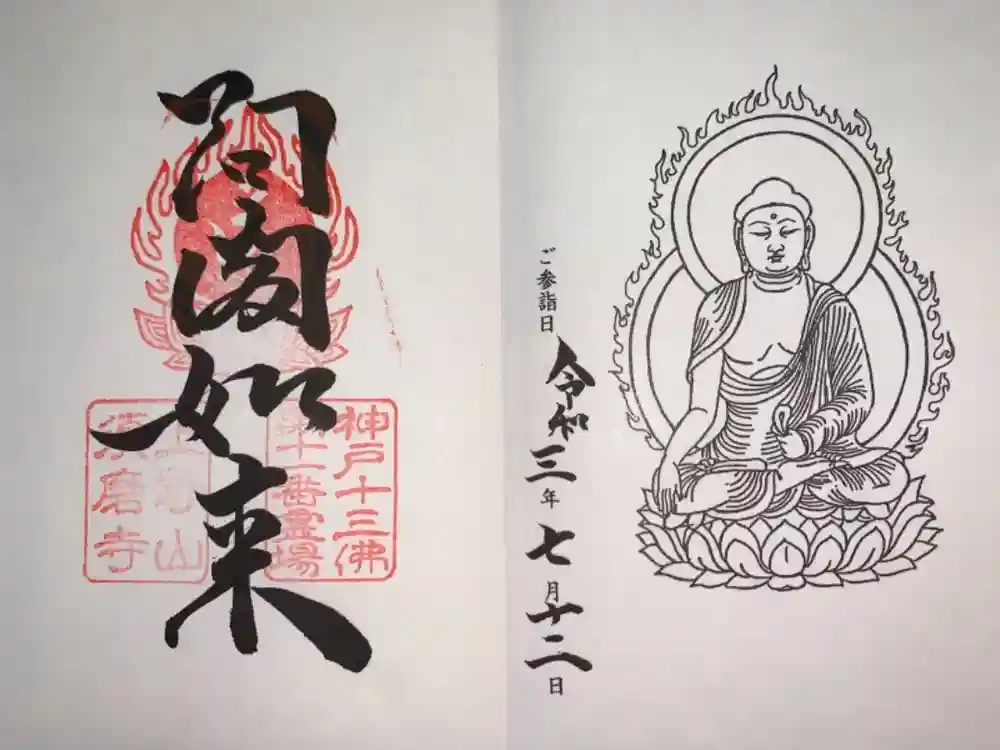 ご参詣日 令和三年七月十二日
阿閦如来
神戸十三佛
第十一番霊場
上野山
須磨寺